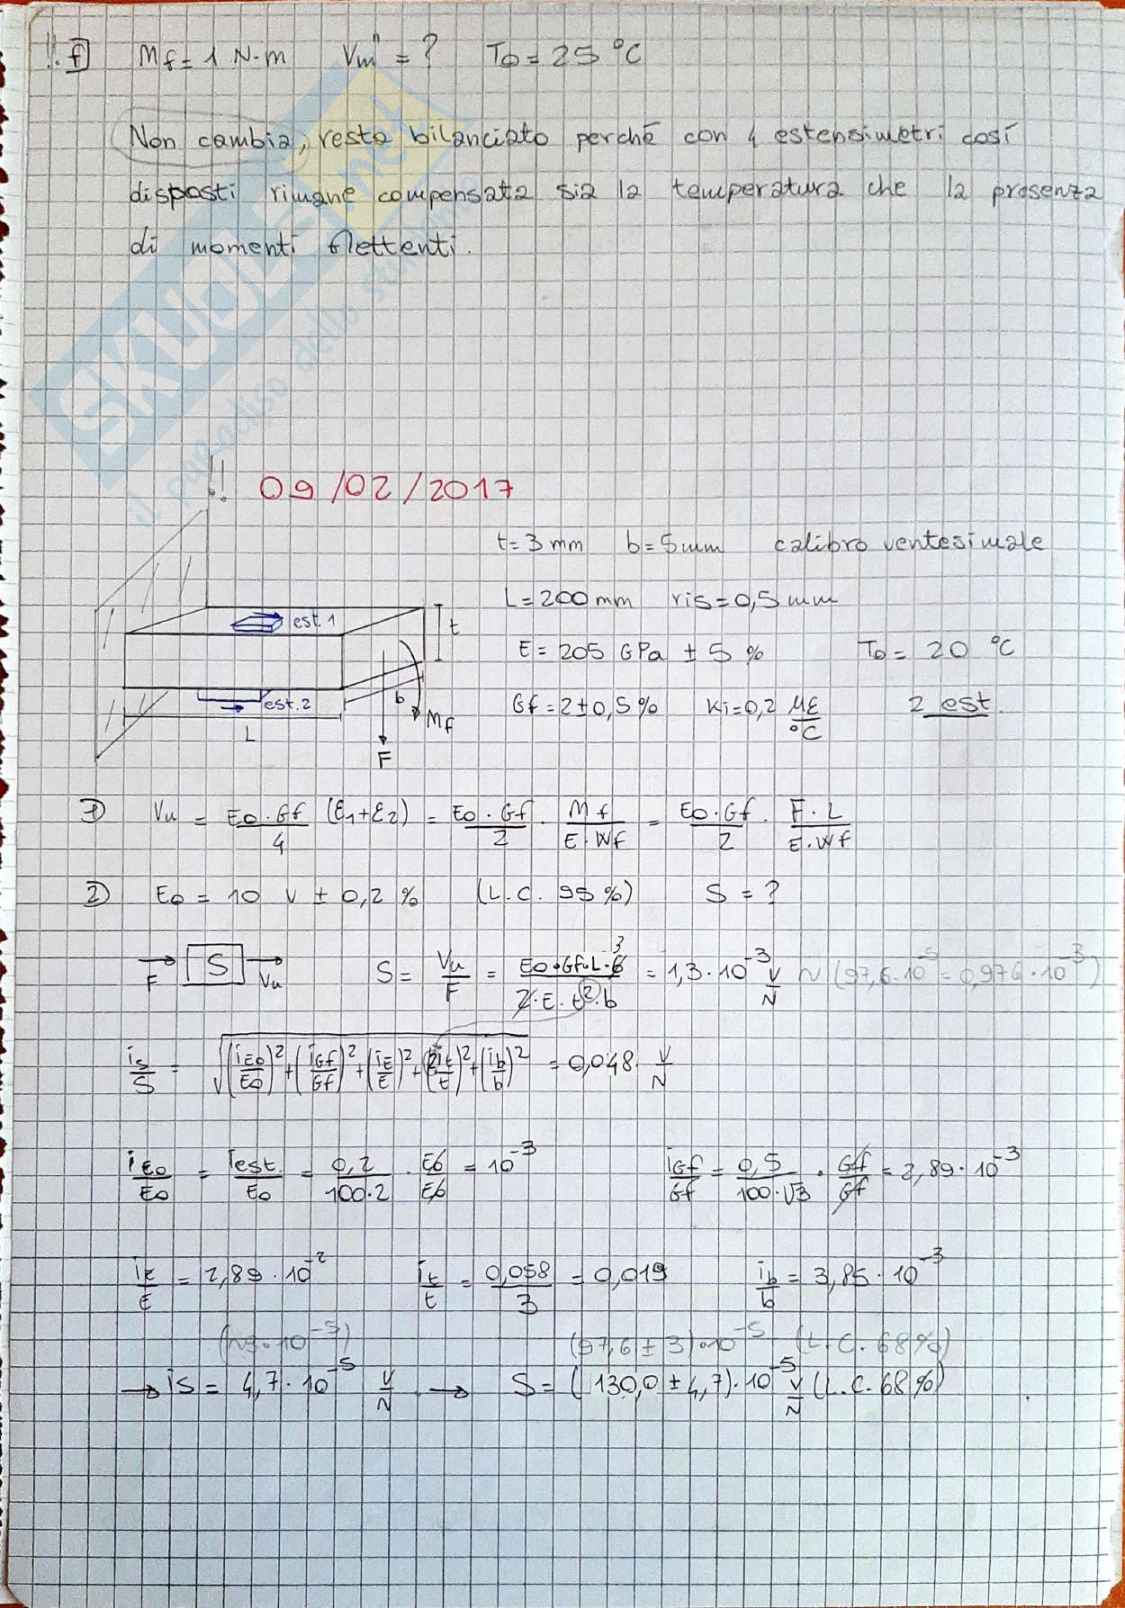 !! f) Mf = 1 N·m Vm" = ? T0 = 25 °C
Non cambia, resta bilanciato perché con 4 estensimetri così
disposti rimane compensata sia la temperatura che la presenza
di momenti flettenti.
SKUOLA.net
il paradiso dello studente
!! 09/02/2017
t = 3 mm b = 5 mm calibro ventesimale
L = 200 mm ris = 0,5 mm
E = 205 GPa ± 5 % T0 = 20 °C
Gf = 2 ± 0,5 % Ki = 0,2 με/°C 2 est.
est. 1
t
est. 2
b
Mf
L
F
1) Vu = E0·Gf/4 (ε1+ε2) = E0·Gf/2 · Mf/E·Wf = E0·Gf/2 · F·L/E·Wf
2) E0 = 10 V ± 0,2 % (L.C. 95 %) S = ?
F → S → Vu S = Vu/F = E0·Gf·L·6 3/2·E·t²·b = 1,3·10⁻³ V/N ~ (97,6·10⁻⁵ = 0,976·10⁻³)
is/S = √((iE0/E0)² + (iGf/Gf)² + (iE/E)² + (2it/t)² + (ib/b)²) = 0,048 · V/N
iE0/E0 = iest./E0 = 0,2/100·2 · E0/E0 = 10⁻³ iGf/Gf = 0,5/100·√3 · Gf/Gf = 2,89·10⁻³
iE/E = 2,89·10⁻² it/t = 0,058/3 = 0,019 ib/b = 3,85·10⁻³
(97,6 ± 3)·10⁻⁵ (L.C. 68%)
→ is = 4,7·10⁻⁵ V/N → S = (130,0 ± 4,7)·10⁻⁵ V/N (L.C. 68 %)